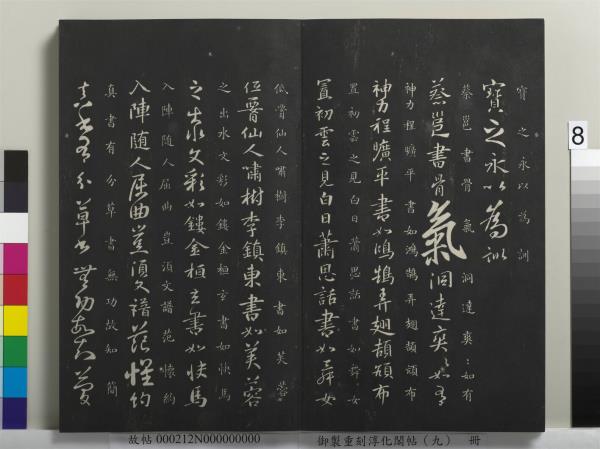 寶之永以為訓
寶之永以為訓
蔡邕書骨氣洞達爽爽如有
蔡邕書骨氣洞達爽爽如有
神力程曠平書如鴻鵠弄翅頡頏布
神力程曠平書如鴻鵠弄翅頡頏布
置初雲之見白日蕭思話書如舞女
置初雲之見白日蕭思話書如舞女
低腰仙人嘯樹李鎮東書如芙蓉
低腰仙人嘯樹李鎮東書如芙蓉
之出水文彩如鏤金桓玄書如快馬
之出水文彩如鏤金桓玄書如快馬
入陣隨人屈曲豈須文譜范懷約
入陣随人屈曲豈須文譜范懷約
真書有分草書無功故知簡
真書有分草書無功故知簡
8
故帖 000212N000000000
御製重刻淳化閣帖（九） 冊